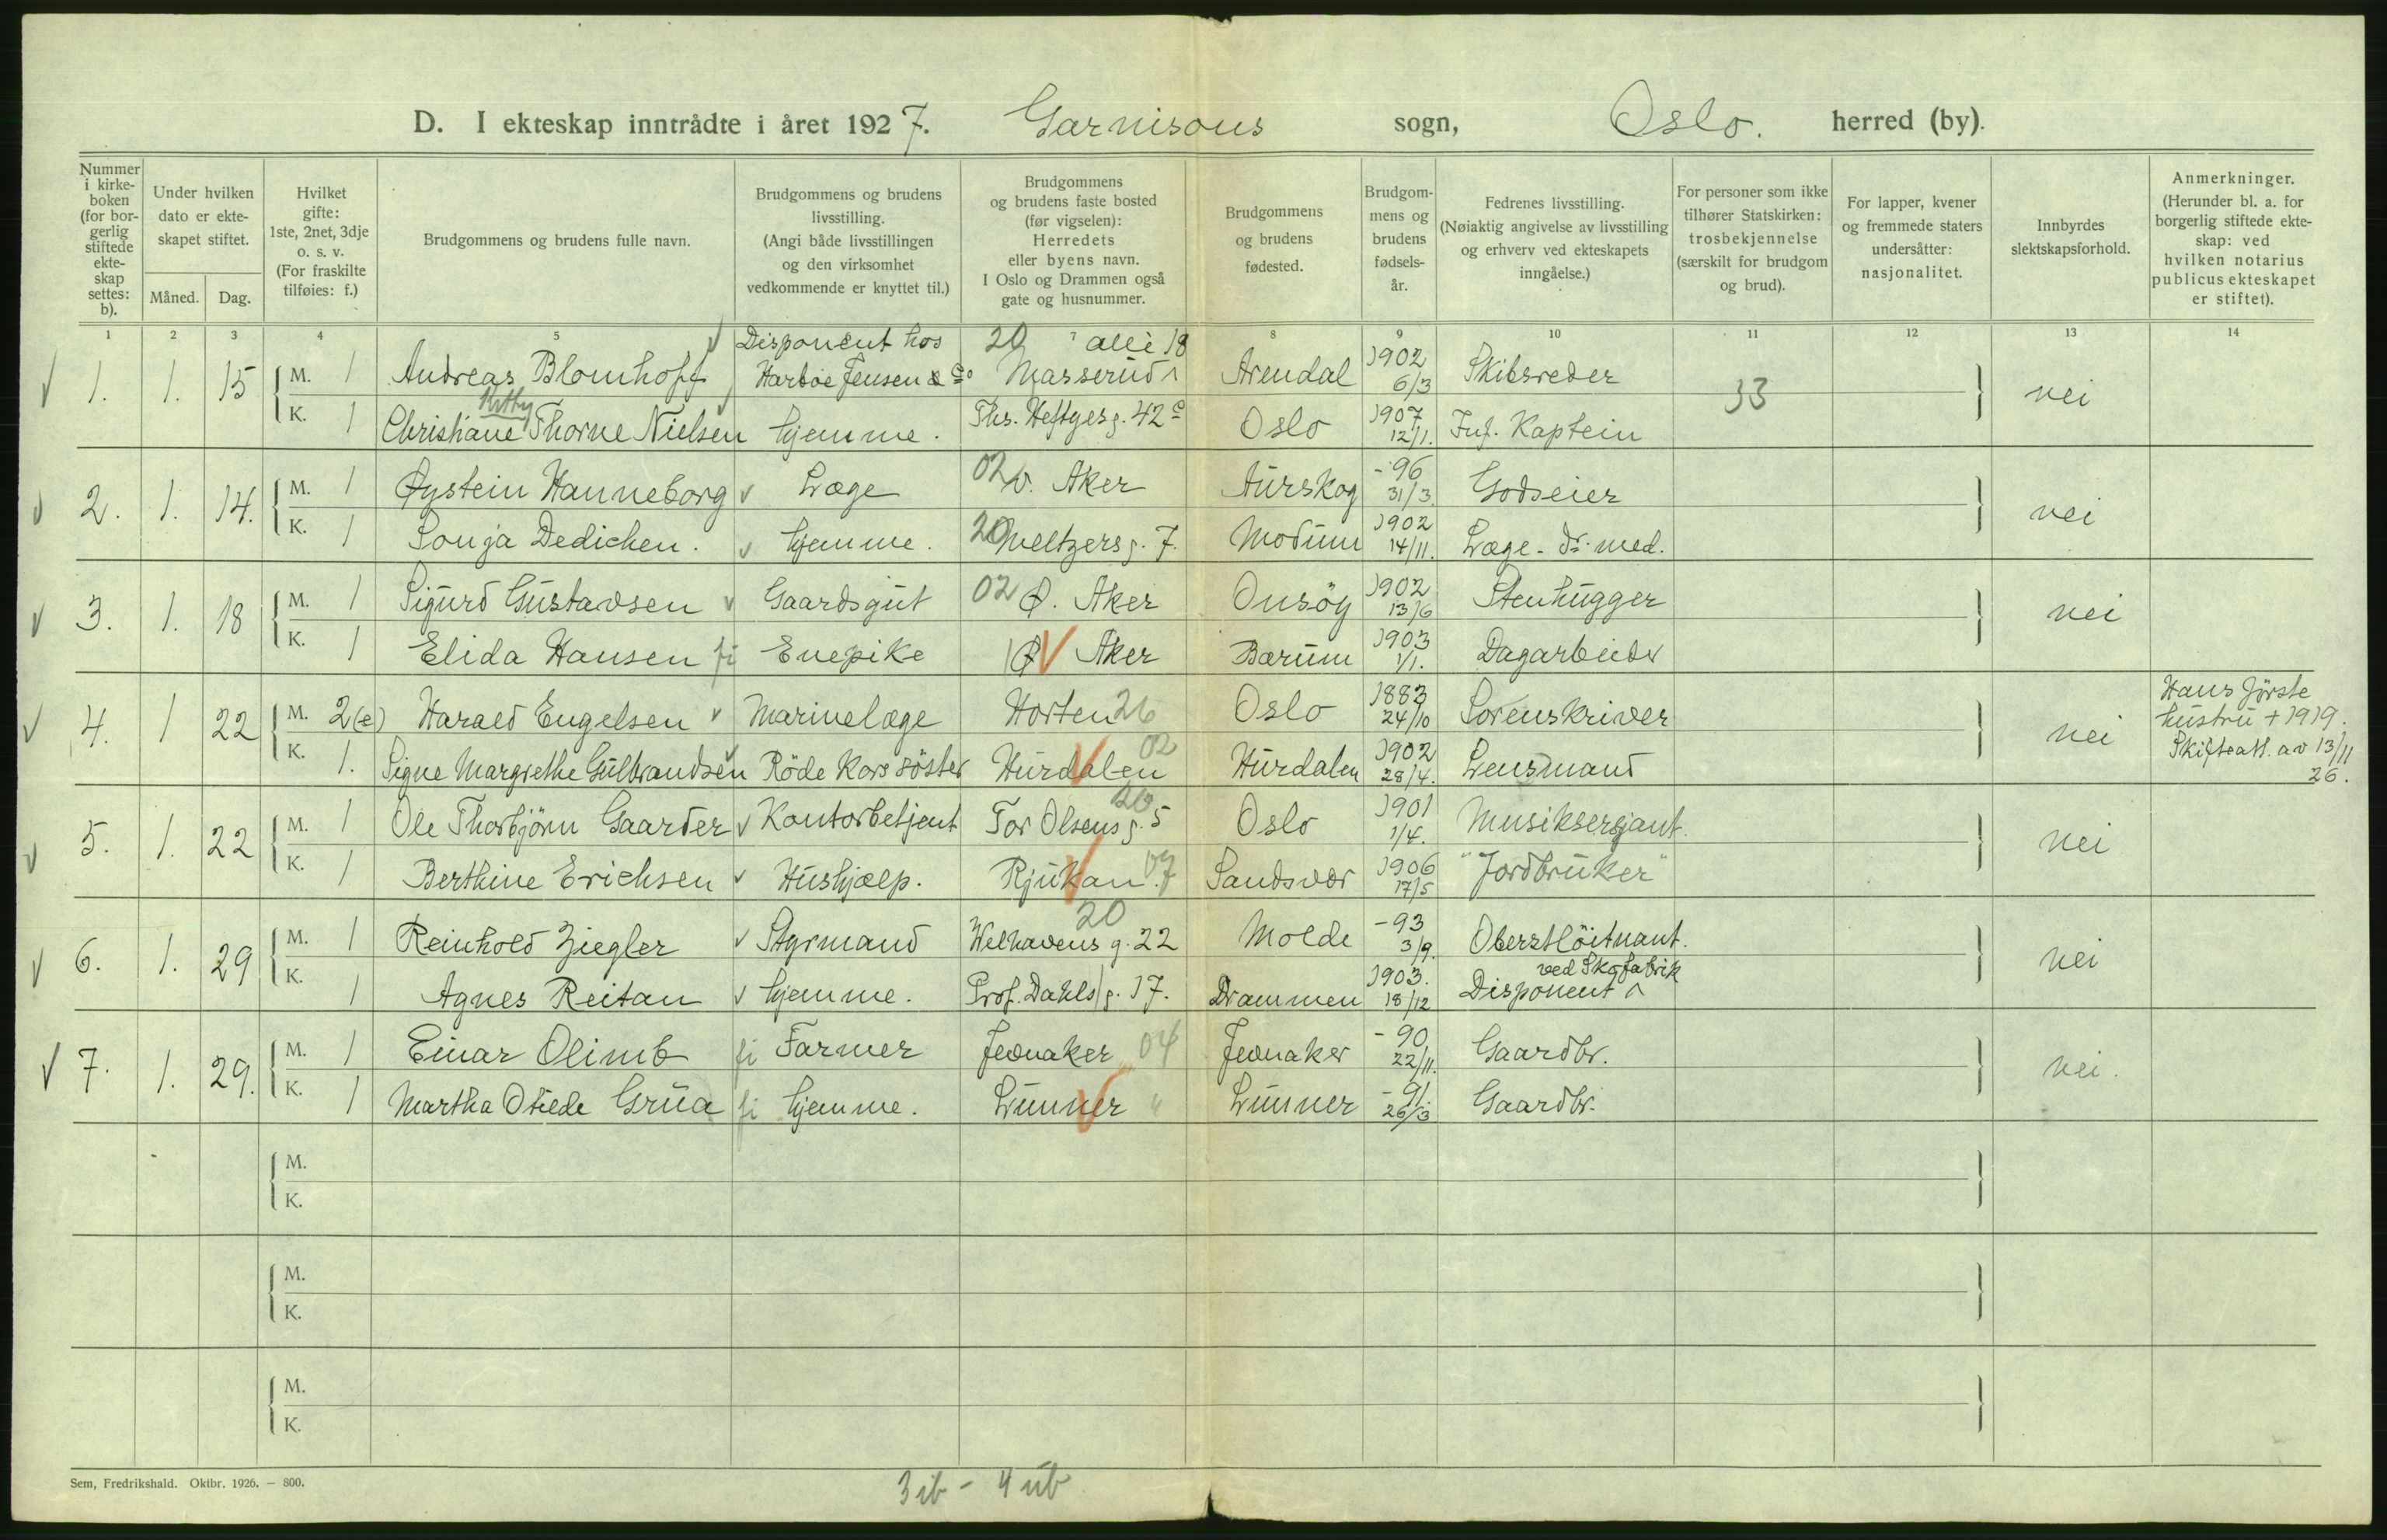 D. I ekteskap inntrådte i året 1927. Garnisons sogn, Oslo. herred (by).
Nummer i kirke- boken (for bor- gerlig stiftede ekte- skap settes: b).
Under hvilken dato er ekte- skapet stiftet.
Måned. Dag.
Hvilket gifte: 1ste, 2net, 3dje o. s. v. (For fraskilte tilføies: f.)
Brudgommens og brudens fulle navn.
Brudgommens og brudens livsstilling. (Angi både livsstillingen og den virksomhet vedkommende er knyttet til.)
Brudgommens og brudens faste bosted (før vigselen): Herredets eller byens navn. I Oslo og Drammen også gate og husnummer.
Brudgommens og brudens fødested.
Brudgom- mens og brudens fødsels- år.
Fedrenes livsstilling. (Nøiaktig angivelse av livsstilling og erhverv ved ekteskapets inngåelse.)
For personer som ikke tilhører Statskirken: trosbekjennelse (særskilt for brudgom og brud).
For lapper, kvener og fremmede staters undersåtter: nasjonalitet.
Innbyrdes slektskapsforhold.
Anmerkninger. (Herunder bl. a. for borgerlig stiftede ekte- skap: ved hvilken notarius publicus ekteskapet er stiftet).
1 2 3 4 5 7 8 9 10 11 12 13 14
Disponent hos 20 alle 18
1. 1. 15 M. 1 Andreas Blomhoff Harboe Jensen & Co Masserud Arendal 1902 6/3 Skibsreder 33 nei
K. 1 Christiane Kitty Thorne Nielsen hjemme. Ths. Heftyesg. 42c Oslo 1907 12/1. Inf. Kaptein
2. 1. 14. M. 1 Øystein Hanneborg Læge 02 v. Aker Aurskog - 96 31/3 Godseier nei
K. 1 Sonja Dedichen. hjemme. 20 Meltzersg. 7. Modum 1902 14/11. Læge - dr. med.
3. 1. 18 M. 1 Sigurd Gustavsen Gaardsgut 02 Ø. Aker Onsöy 1902 13/6 Stenhugger nei
K. 1 Elida Hansen fi Enepike Ø Aker Bærum 1903 1/1. Dagarbeider
4. 1 22 M. 2(e) Harald Engelsen Marinelæge Horten 26 Oslo 1883 24/10 Sorenskriver nei Hans förste hustru + 1919. Skifteatt. av 13/11 26.
K. 1. Signe Margrethe Gulbrandsen Röde Kors söster Hurdalen 02 Hurdalen 1902 28/4. Lensmand
5. 1. 22 M. 1 Ole Thorbjörn Gaarder Kontorbetjent Tor Olsens g. 5 20 Oslo 1901 1/4. Musiksersjant. nei
K. 1 Berthine Erichsen Hushjælp. Rjukan. 07 Sandsvær 1906 17/5 "Jordbruker"
6. 1. 29 M. 1 Reinhold Ziegler Styrmand 20 Welhavens g. 22 Molde - 93 3/9. Oberstlöitnant. nei
K. 1 Agnes Reitan hjemme. Prof. Dahls g. 17. Drammen 1903. 18/12 Disponent ved Skofabrik
7. 1. 29. M. 1 Einar Olimb fi Farmer Jevnaker 04 Jevnaker - 90 22/11. Gaardbr. nei.
K. 1 Martha Otilde Grua fi hjemme. Lunner " Lunner - 91. 26/3 Gaardbr.
M.
K.
M.
K.
M.
K.
Sem, Fredrikshald. Oktbr. 1926. — 800.
3 ib - 4 ub